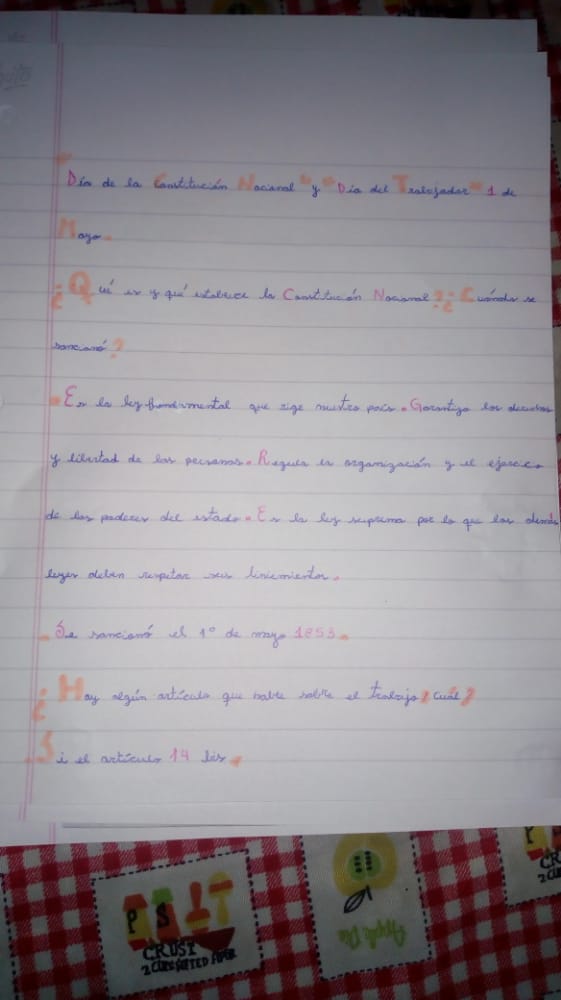 Día de la Constitución Nacional " y " Día del Trabajador " 1 de
Mayo.
¿Qué es y qué establece la Constitución Nacional? ¿Cuándo se
sancionó?
Es la ley fundamental que rige nuestro país. Garantiza los derechos
y libertad de las personas. Regula la organización y el ejercicio
de los poderes del estado. Es la ley suprema por lo que las demás
leyes deben respetar sus lineamientos.
Se sancionó el 1º de mayo 1853.
¿Hay algún artículo que hable sobre el trabajo? cuál?
Si el artículo 14 bis.
PS
CRUST
Apple Pie
P
CR